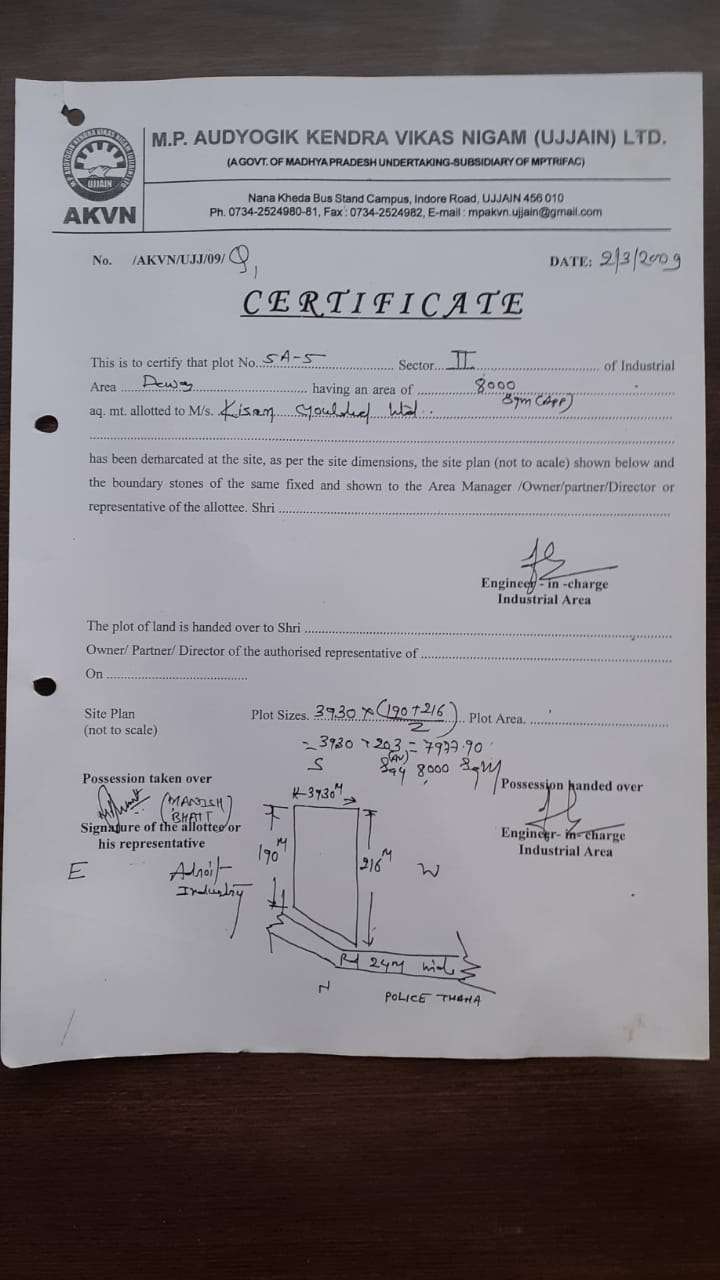 M.P. AUDYOGIK KENDRA VIKAS NIGAM (UJJAIN) LTD.
(A GOVT. OF MADHYA PRADESH UNDERTAKING-SUBSIDIARY OF MPTRIFAC)
UJJAIN
AKVN
Nana Kheda Bus Stand Campus, Indore Road, UJJAIN 456 010
Ph. 0734-2524980-81, Fax : 0734-2524982, E-mail : mpakvn.ujjain@gmail.com
No. /AKVN/UJJ/09/
DATE: 2/3/2009
CERTIFICATE
This is to certify that plot No. 5A-5 Sector II of Industrial
Area Dewas having an area of 8000
Sqm (App)
aq. mt. allotted to M/s. Kisan Moulded Ltd.
has been demarcated at the site, as per the site dimensions, the site plan (not to acale) shown below and
the boundary stones of the same fixed and shown to the Area Manager /Owner/partner/Director or
representative of the allottee. Shri
Engineer - in -charge
Industrial Area
The plot of land is handed over to Shri
Owner/ Partner/ Director of the authorised representative of
On
Site Plan
(not to scale)
Plot Sizes. 3930 x (190+216)/2 Plot Area.
= 3930 x 203 = 7977.90
S
Say 8000 Sqm
Possession taken over
Possession handed over
(MANISH
BHATT)
Signature of the allottee or
his representative
Engineer- in- charge
Industrial Area
3930 M
190 M
216 M
E
W
Adroit
Industry
Rd 24M wide
N
POLICE THANA